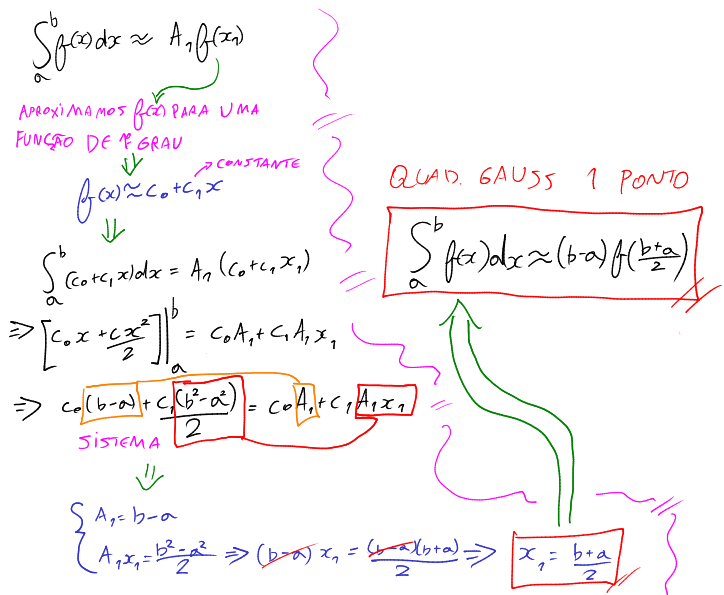 ∫ₐᵇ f(x)dx ≈ A₁f(x₁)
APROXIMAMOS f(x) PARA UMA
FUNÇÃO DE 1º GRAU
⇓
→ CONSTANTE
f(x) ≈ c₀+c₁x
⇓
∫ₐᵇ (c₀+c₁x)dx = A₁(c₀+c₁x₁)
⇒ [c₀x + cx²/2]|ₐᵇ = c₀A₁+c₁A₁x₁
⇒ c₀(b-a)+c₁(b²-a²)/2 = c₀A₁+c₁A₁x₁
SISTEMA
⇓
{ A₁=b-a
A₁x₁=b²-a²/2 ⇒ (b-a)x₁ = (b-a)(b+a)/2 ⇒ x₁ = b+a/2
QUAD. GAUSS 1 PONTO
∫ₐᵇ f(x)dx≈(b-a)f(b+a/2)